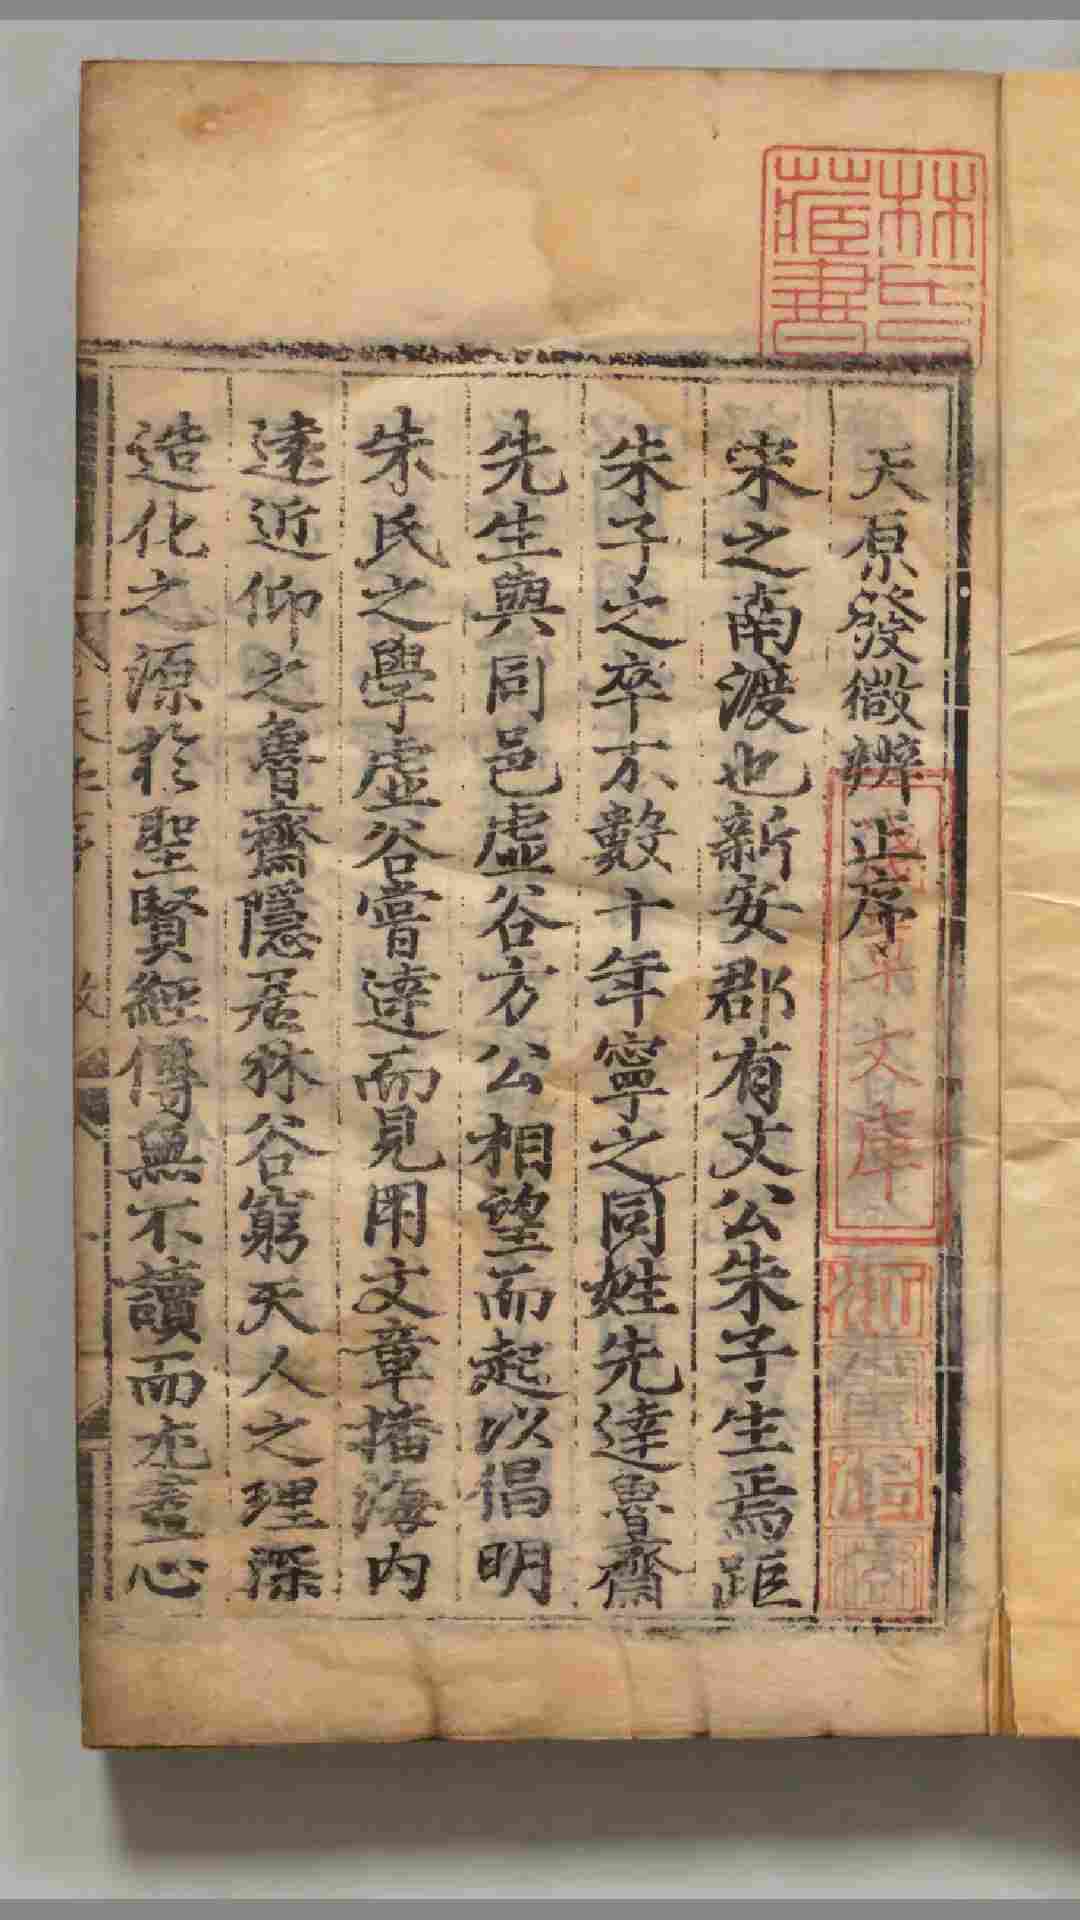 林氏
藏書
天原發微辨正序
宋之南渡也新安郡有文公朱子生焉距
朱子之卒不數十年寧之同姓先達魯齋
先生與同邑虛谷方公相望而起以倡明
朱氏之學虛谷嘗達而見用文章播海内
遠近仰之魯齋隱居林谷窮天人之理深
造化之源於聖賢經傳無不讀而尤盡心